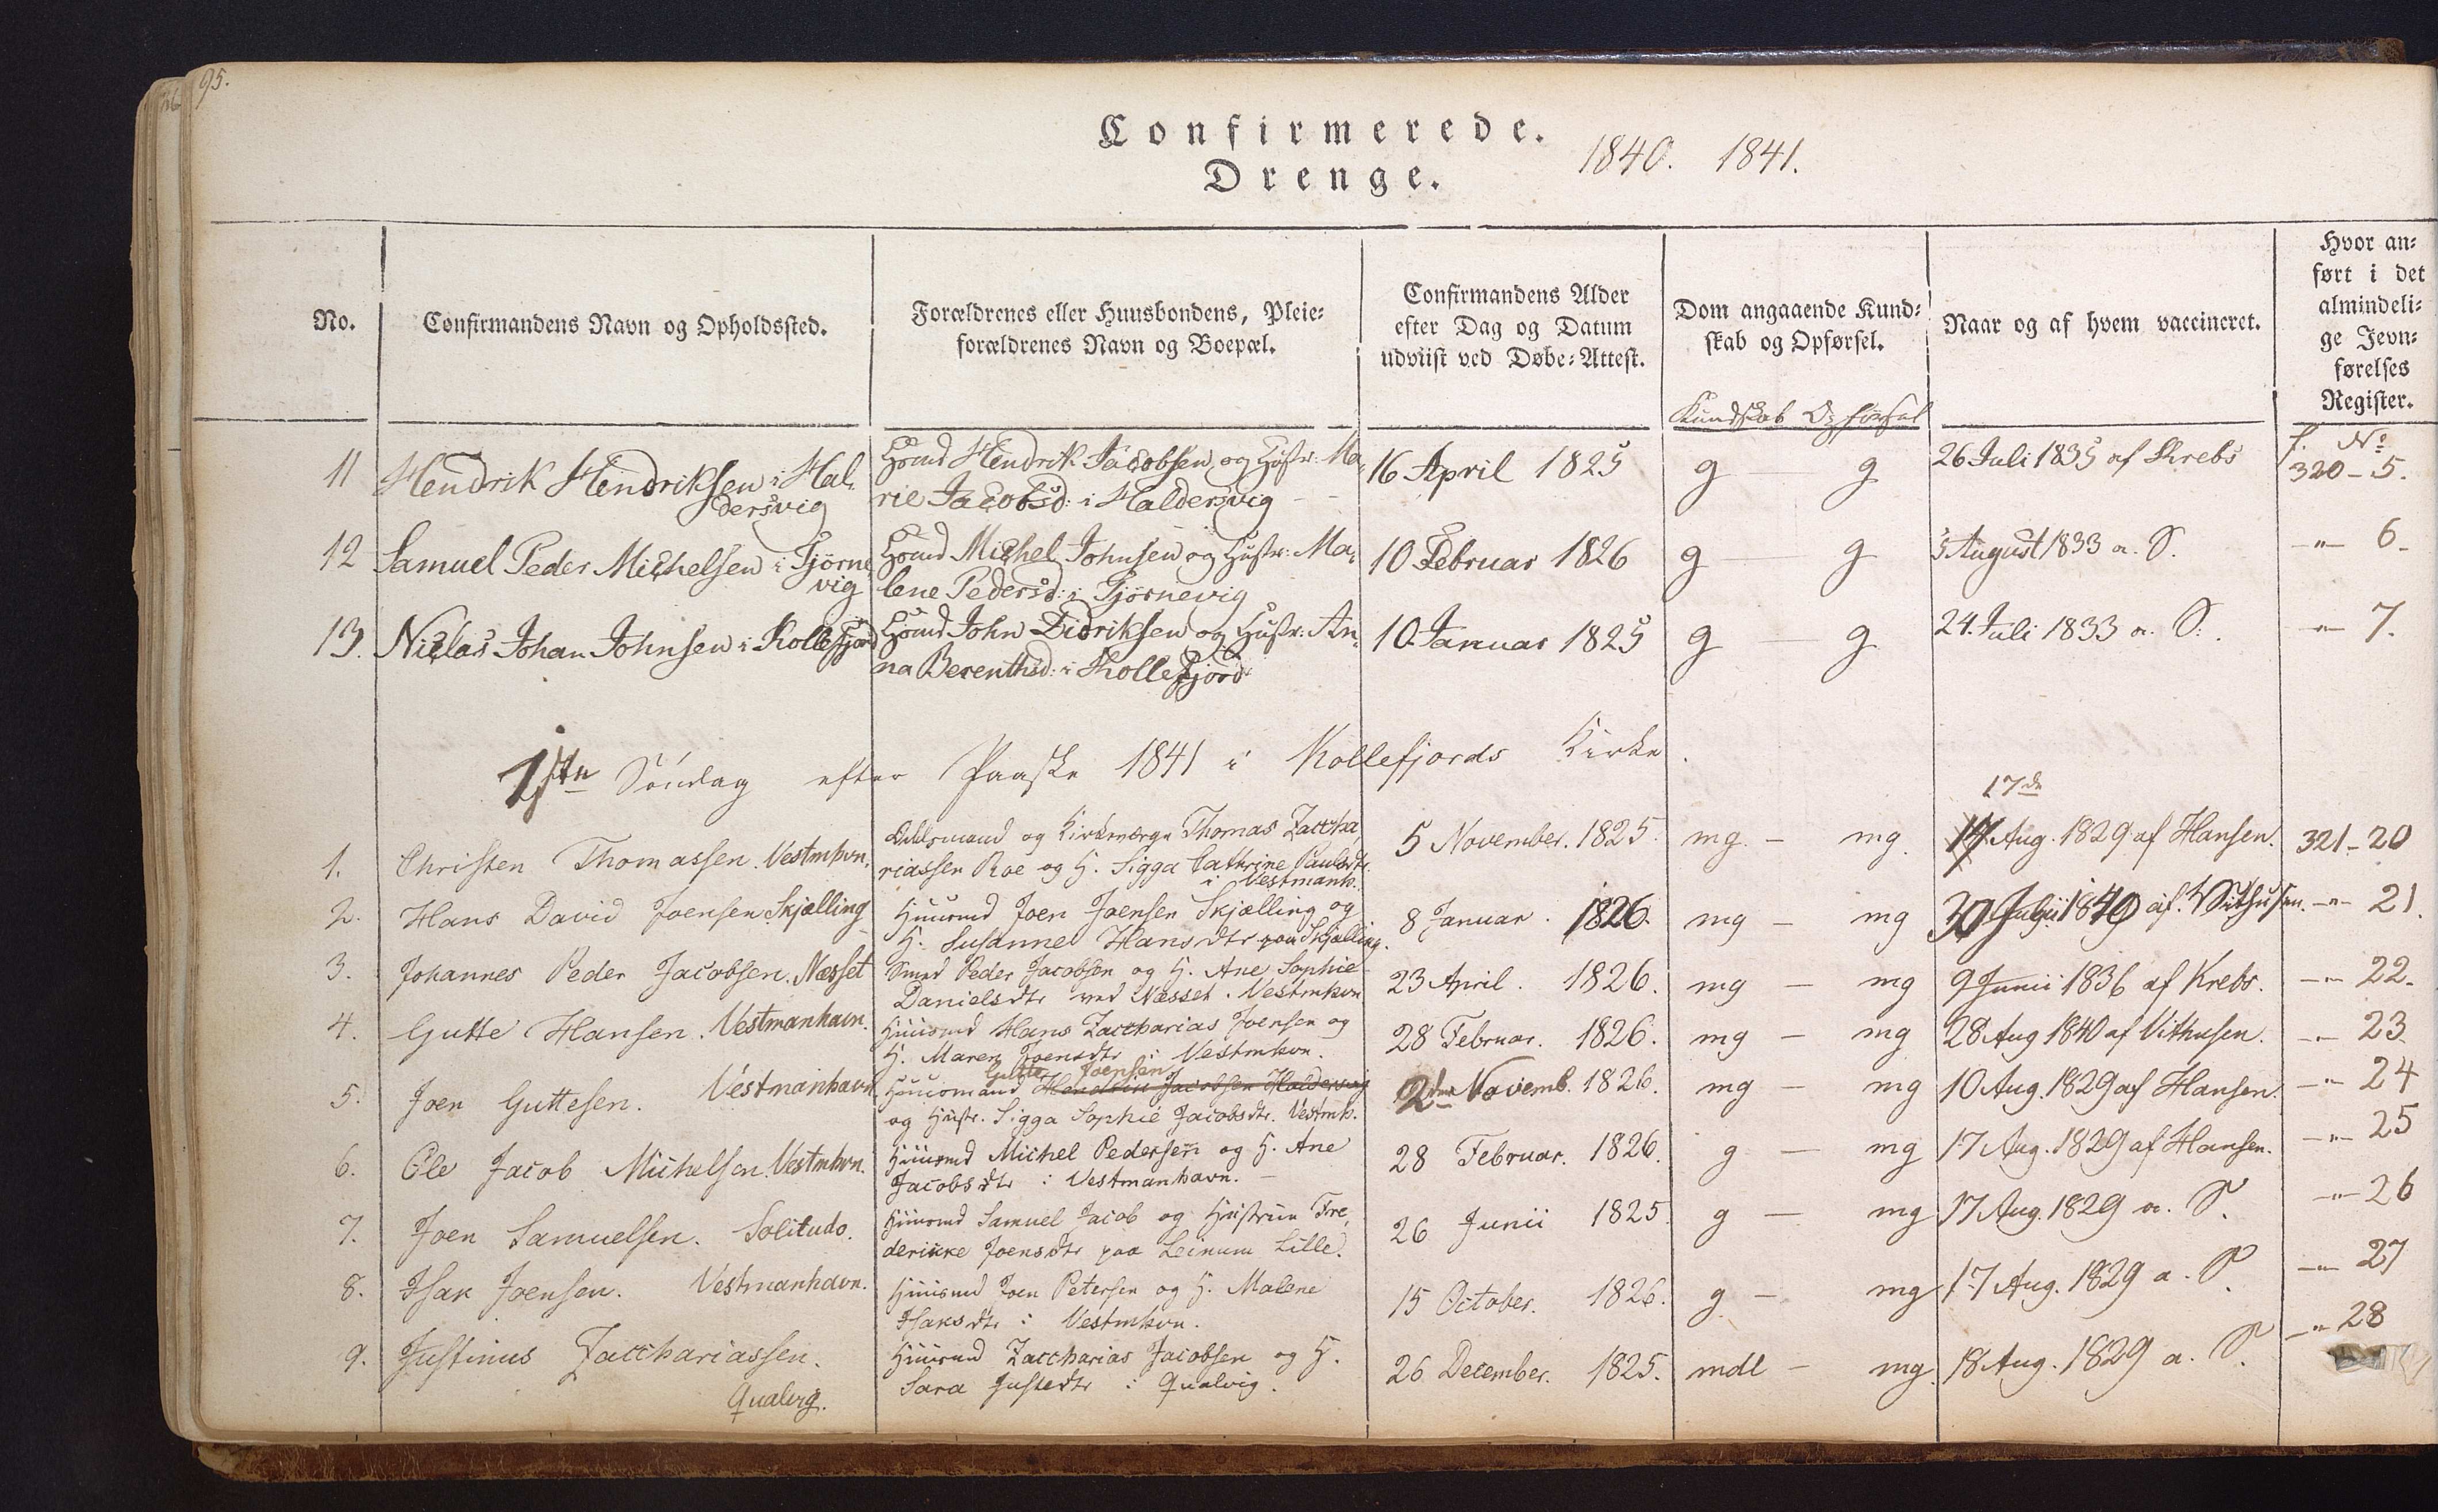 95.
Confirmerede.
Drenge.
1840. 1841.
No.
Confirmandens Navn og Opholdssted.
Forældrenes eller Huusbondens, Pleie-
forældrenes Navn og Boepæl.
Confirmandens Alder
efter Dag og Datum
udviist ved Døbe-Attest.
Dom angaaende Kund-
skab og Opførsel.
Kundskab Opførsel
Naar og af hvem vaccineret.
Hvor an-
ført i det
almindeli-
ge Jevn-
førelses
Register.
f. No
11 Hendrik Hendriksen i Hal-
dersvig
Hsmd Hendrik Jacobsen og Hustr: Ma-
rie Jacobsd: i Haldersvig
16 April 1825 g — g 26 Juli 1835 af Krebs 320 - 5.
12 Samuel Peder Michelsen i Tjørne
vig
Hsmd Michel Johnsen og Hustr: Ma-
lene Pedersd: i Tjörnevig
10 Februar 1826 g — g 5 August 1833 a. S. -"- 6.
13. Niclas Johan Johnsen i Kollefjord
Hsmd John Didriksen og Hustr: An-
na Berenthsd: i Kollefjord
10. Januar 1825 g — g 24. Juli 1833 a. S. -"- 7.
1ste Söndag efter Paaske 1841 i Kollefjords Kirke.
1. Christen Thomassen. Vestmhvn.
Odelsmand og Kirkeværge Thomas Zaccha
riassen Roe og H. Sigga Cathrine Paulsdtr.
i Vestmanh.
5 November. 1825. mg. — mg.
17de
Aug. 1829 af Hansen. 321 - 20
2. Hans David Joensen Skjælling
Huusmd Joen Joensen Skjælling og
H. Susanne Hansdtr paa Skjælling.
8 Januar. 1826. mg — mg 30 1840 af -"- 21.
3. Johannes Peder Jacobsen. Næsset
Smed Peder Jacobsen og H. Ane Sophie
Danielsdtr ved Næsset. Vestmhvn
23 April. 1826. mg — mg 9 Junii 1836 af Krebs. -"- 22.
4. Gutte Hansen. Vestmanhavn.
Huusmd Hans Zaccharias Joensen og
H. Maren Joensdtr i Vestmhvn.
28 Februar. 1826. mg — mg 28 Aug 1840 af Vithusen. -"- 23.
5. Joen Guttesen. Vestmanhavn
Gutte Joensen
Huusmand Hendrik Jacobsen Haldersvig
og Hustr. Sigga Sophie Jacobsdtr. Vestmh.
2den Novemb. 1826. mg — mg 10 Aug. 1829 af Hansen. -"- 24
6. Ole Jacob Michelsen. Vestmhvn.
Huusmd Michel Pedersen og H. Ane
Jacobsdtr i Vestmanhavn.
28 Februar. 1826. g — mg 17 Aug. 1829 af Hansen. -"- 25
7. Joen Samuelsen. Solitudo.
Huusmd Samuel Jacob og Hustrue Fre,
derikke Joensdtr paa Leinum Lille.
26 Junii 1825. g — mg 17 Aug. 1829 a. S. -"- 26
8. Isak Joensen. Vestmanhavn.
Huusmd Joen Petersen og H. Malene
Isaksdtr i Vestmhvn.
15 October. 1826. g — mg 17 Aug. 1829 a. S. -"- 27
9. Justinus Zacchariassen.
Qualvig.
Huusmd Zaccharias Jacobsen og H.
Sara Justedtr i Qualvig.
26 December. 1825. mdl — mg. 18 Aug. 1829 a. S. -"- 28